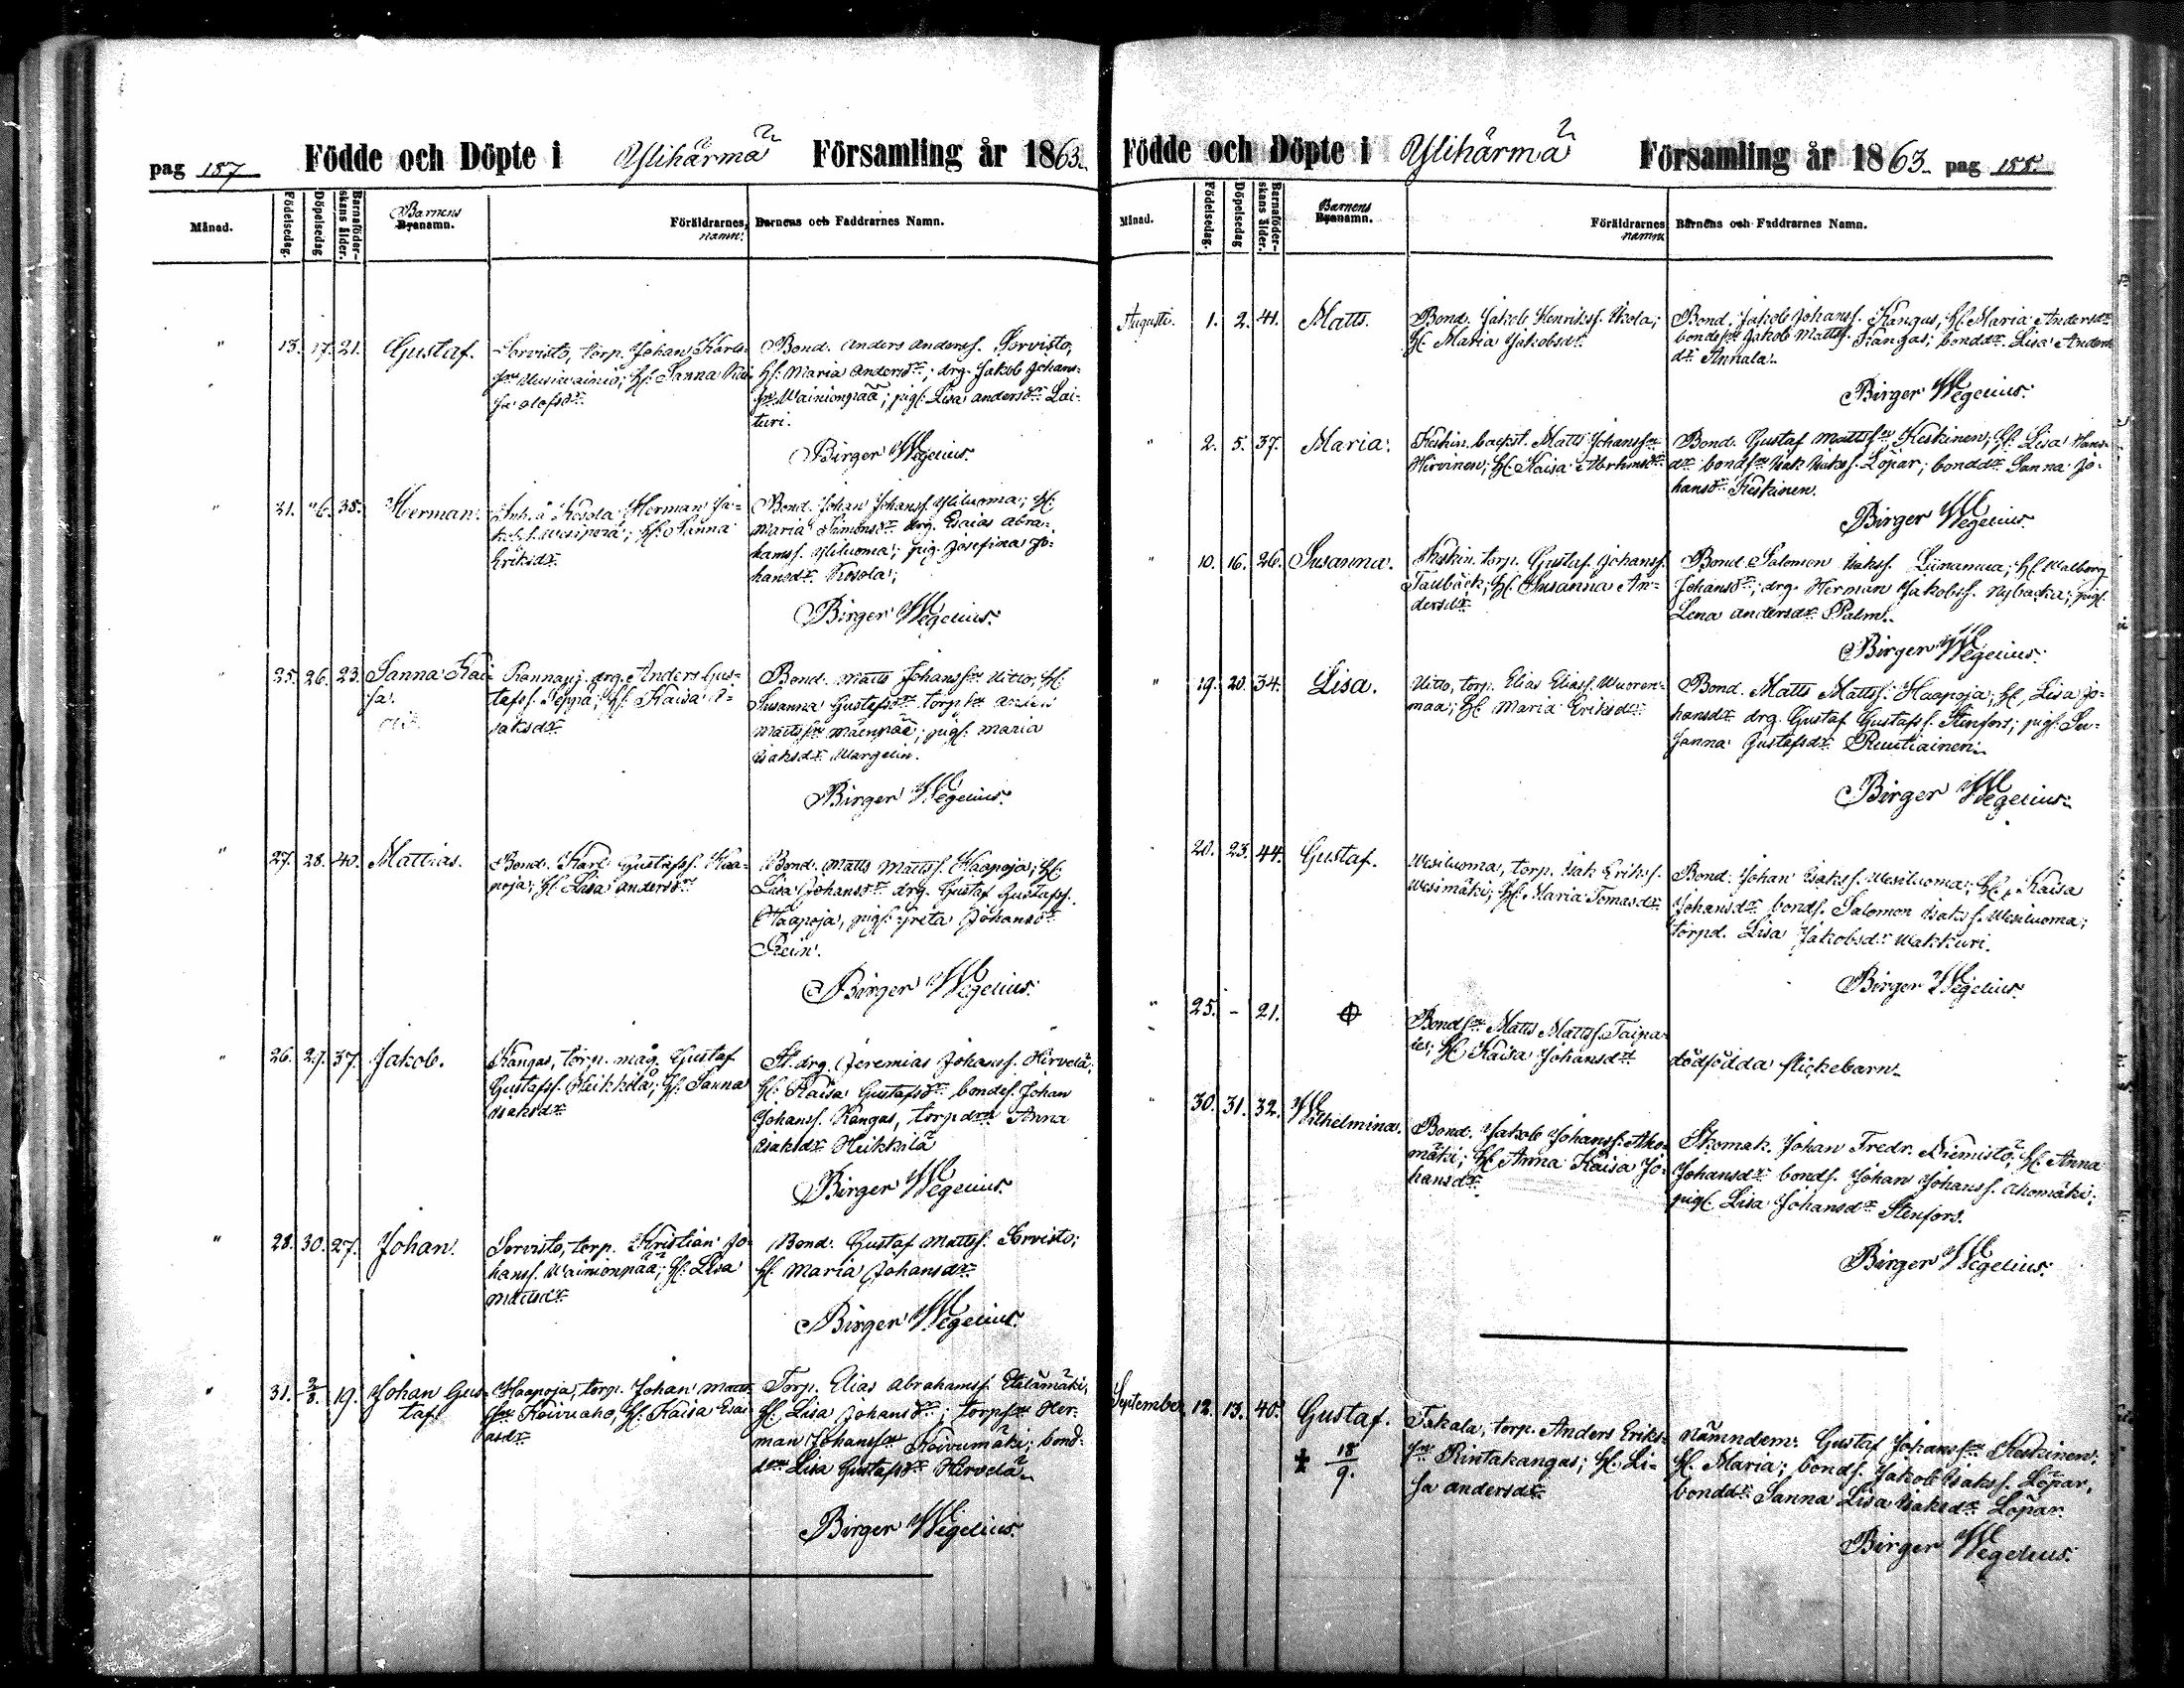 pag 157
Födde och Döpte i Ylihärmä Församling år 1863.
Månad.
Födelsedag.
Döpelsedag
Barnaföder-
skans ålder.
Barnens
Byanamn.
Föräldrarnes,
namn.
Barnens och Faddrarnes Namn.
" 13. 17. 21. Gustaf.
Sorvisto, torp. Johan Karls-
Hf. Sanna Kai-
sa Olofsdr
Bond. Anders Andersf. Sorvisto,
Hf. Maria Andersdr; drg. Jakob Johans-
fn Wainionpää; pigf. Lisa Andersdr Lai-
turi.
Birger Wegelius.
" 21. 26. 35. Herman.
Kosola Herman Ja-
Hf. Sanna
Eriksdr
Bond. Johan Johansf. Yliluoma; Hf.
Maria Simonsdr drg. Esaias Abra-
hamsf. Yliluoma; pig. Josefina Jo-
hansdr Kosola;
Birger Wegelius.
" 25. 26. 23. Sanna Kai-
sa.
drg. Anders Gus-
tafsf. Seppä; Hf. Kaisa I-
saksdr
Bond. Matts Johansfn Uitto; Hf.
Susanna Gustafsdr torpfn
Mattsfn Mäenpää; pigf. Maria
Isaksdr Wargelin.
Birger Wegelius.
" 27. 28. 40. Mattias.
Bond. Karl Gustafsf. Haa-
poja; Hf. Lisa Andersdr
Bond. Matts Mattsf. Haapoja; Hf.
Lisa Johansdr drg. Gustaf Gustafsf.
Haapoja, pigf. Greta Johansdr
Rein.
Birger Wegelius.
" 26. 29. 37. Jakob.
Kangas, torp. måg Gustaf
Gustafsf. Heikkilä; Hf. Sanna
Isaksdr
St. drg. Jeremias Johansf. Hirvelä;
Hf. Kaisa Gustafsdr bondes. Johan
Johansf. Kangas, torpdrn Anna
Isaksdr Heikkilä
Birger Wegelius.
" 28. 30. 27. Johan.
Sorvisto, torp. Kristian Jo-
hansf. Wainionpää; Hf. Lisa
Mattsdr
Bond. Gustaf Mattsf. Sorvisto;
Hf. Maria Johansdr
Birger Wegelius.
" 31. 2/8. 19. Johan Gus-
taf.
Haapoja, torp. Johan Matts-
fn Koivuaho, Hf. Kaisa Esai-
asdr
Torp. Elias Abrahamsf. Etelämäki,
Hf. Lisa Johansdr; torpfn Her-
man Johansfn Koivumäki; bond-
drn Lisa Gustafsdr Hirvelä
Birger Wegelius.
Födde och Döpte i Ylihärmä Församling år 1863. pag 158.
Månad.
Födelsedag.
Döpelsedag
Barnaföder-
skans ålder.
Barnens
Byanamn.
Föräldrarnes
namn.
Barnens och Faddrarnes Namn.
Augusti. 1. 2. 41. Matts.
Bond. Jakob Henriksf. Ekola;
Hf. Maria Jakobsdr
Bond. Jakob Johansf. Kangas, Hf. Maria Andersdr
bondefn Jakob Mattsf. Kangas; bonddr. Lisa Anders-
dr Annala.
Birger Wegelius.
" 2. 5. 37. Maria.
Keskin. backst. Matts Johansfn
Hirvinen; Hf. Kaisa Abrhmsdr
Bond. Gustaf Mattsfn Keskinen; Hf. Lisa Hans-
dr bondfn Isak Isaksf. Löpar; bonddr Sanna Jo-
hansdr Keskinen.
Birger Wegelius.
" 10. 16. 26. Susanna.
Keskin. torp. Gustaf Johansf.
Tailbäck; Hf. Susanna An-
dersdr
Bond. Salomon Isaksf. Liinamaa; Hf. Walborg
Johansdr; drg. Herman Jakobsf. Nybacka; pigf.
Lena Andersdr Palm.
Birger Wegelius.
" 19. 20. 34. Lisa.
Uitto, torp. Elias Eliasf. Wuoren-
maa; Hf. Maria Eriksdr
Bond. Matts Mattsf. Haapoja; Hf. Lisa Jo-
hansdr drg. Gustaf Gustafsf. Stenfors; pigf. Su-
sanna Gustafsdr Ruutiainen
Birger Wegelius.
20. 23. 44. Gustaf.
Wesiluoma, torp. Isak Eriksf.
Wesimäki; Hf. Maria Tomasdr
Bond. Johan Isaksf. Wesiluoma; Hf. Kaisa
Johansdr bondf. Salomon Isaksf. Wesiluoma;
torpd. Lisa Jakobsdr Wakkuri.
Birger Wegelius.
" 25. - 21.
Bondfn Matts Mattsf. Taipa-
le; Hf. Kaisa Johansdr
dödfödda flickebarn
" 30. 31. 32. Wilhelmina.
Bond. Jakob Johansf. Aho-
mäki; Hf. Anna Kaisa Jo-
hansdr
Skomak. Johan Fredr. Niemistö; Hf. Anna
Johansdr bondf. Johan Johansf. Ahomäki;
pigf. Lisa Johansdr Stenfors.
Birger Wegelius.
September 12. 13. 40. Gustaf.
✝ 18/9.
Takala, torp. Anders Eriks-
fn Rintakangas; Hf. Li-
sa Andersdr
Nämndem. Gustaf Johansfn Keskinen;
Hf. Maria; bondf. Jakob Isaksf. Löpar,
bonddr Sanna Lisa Isaksdr Löpar.
Birger Wegelius.